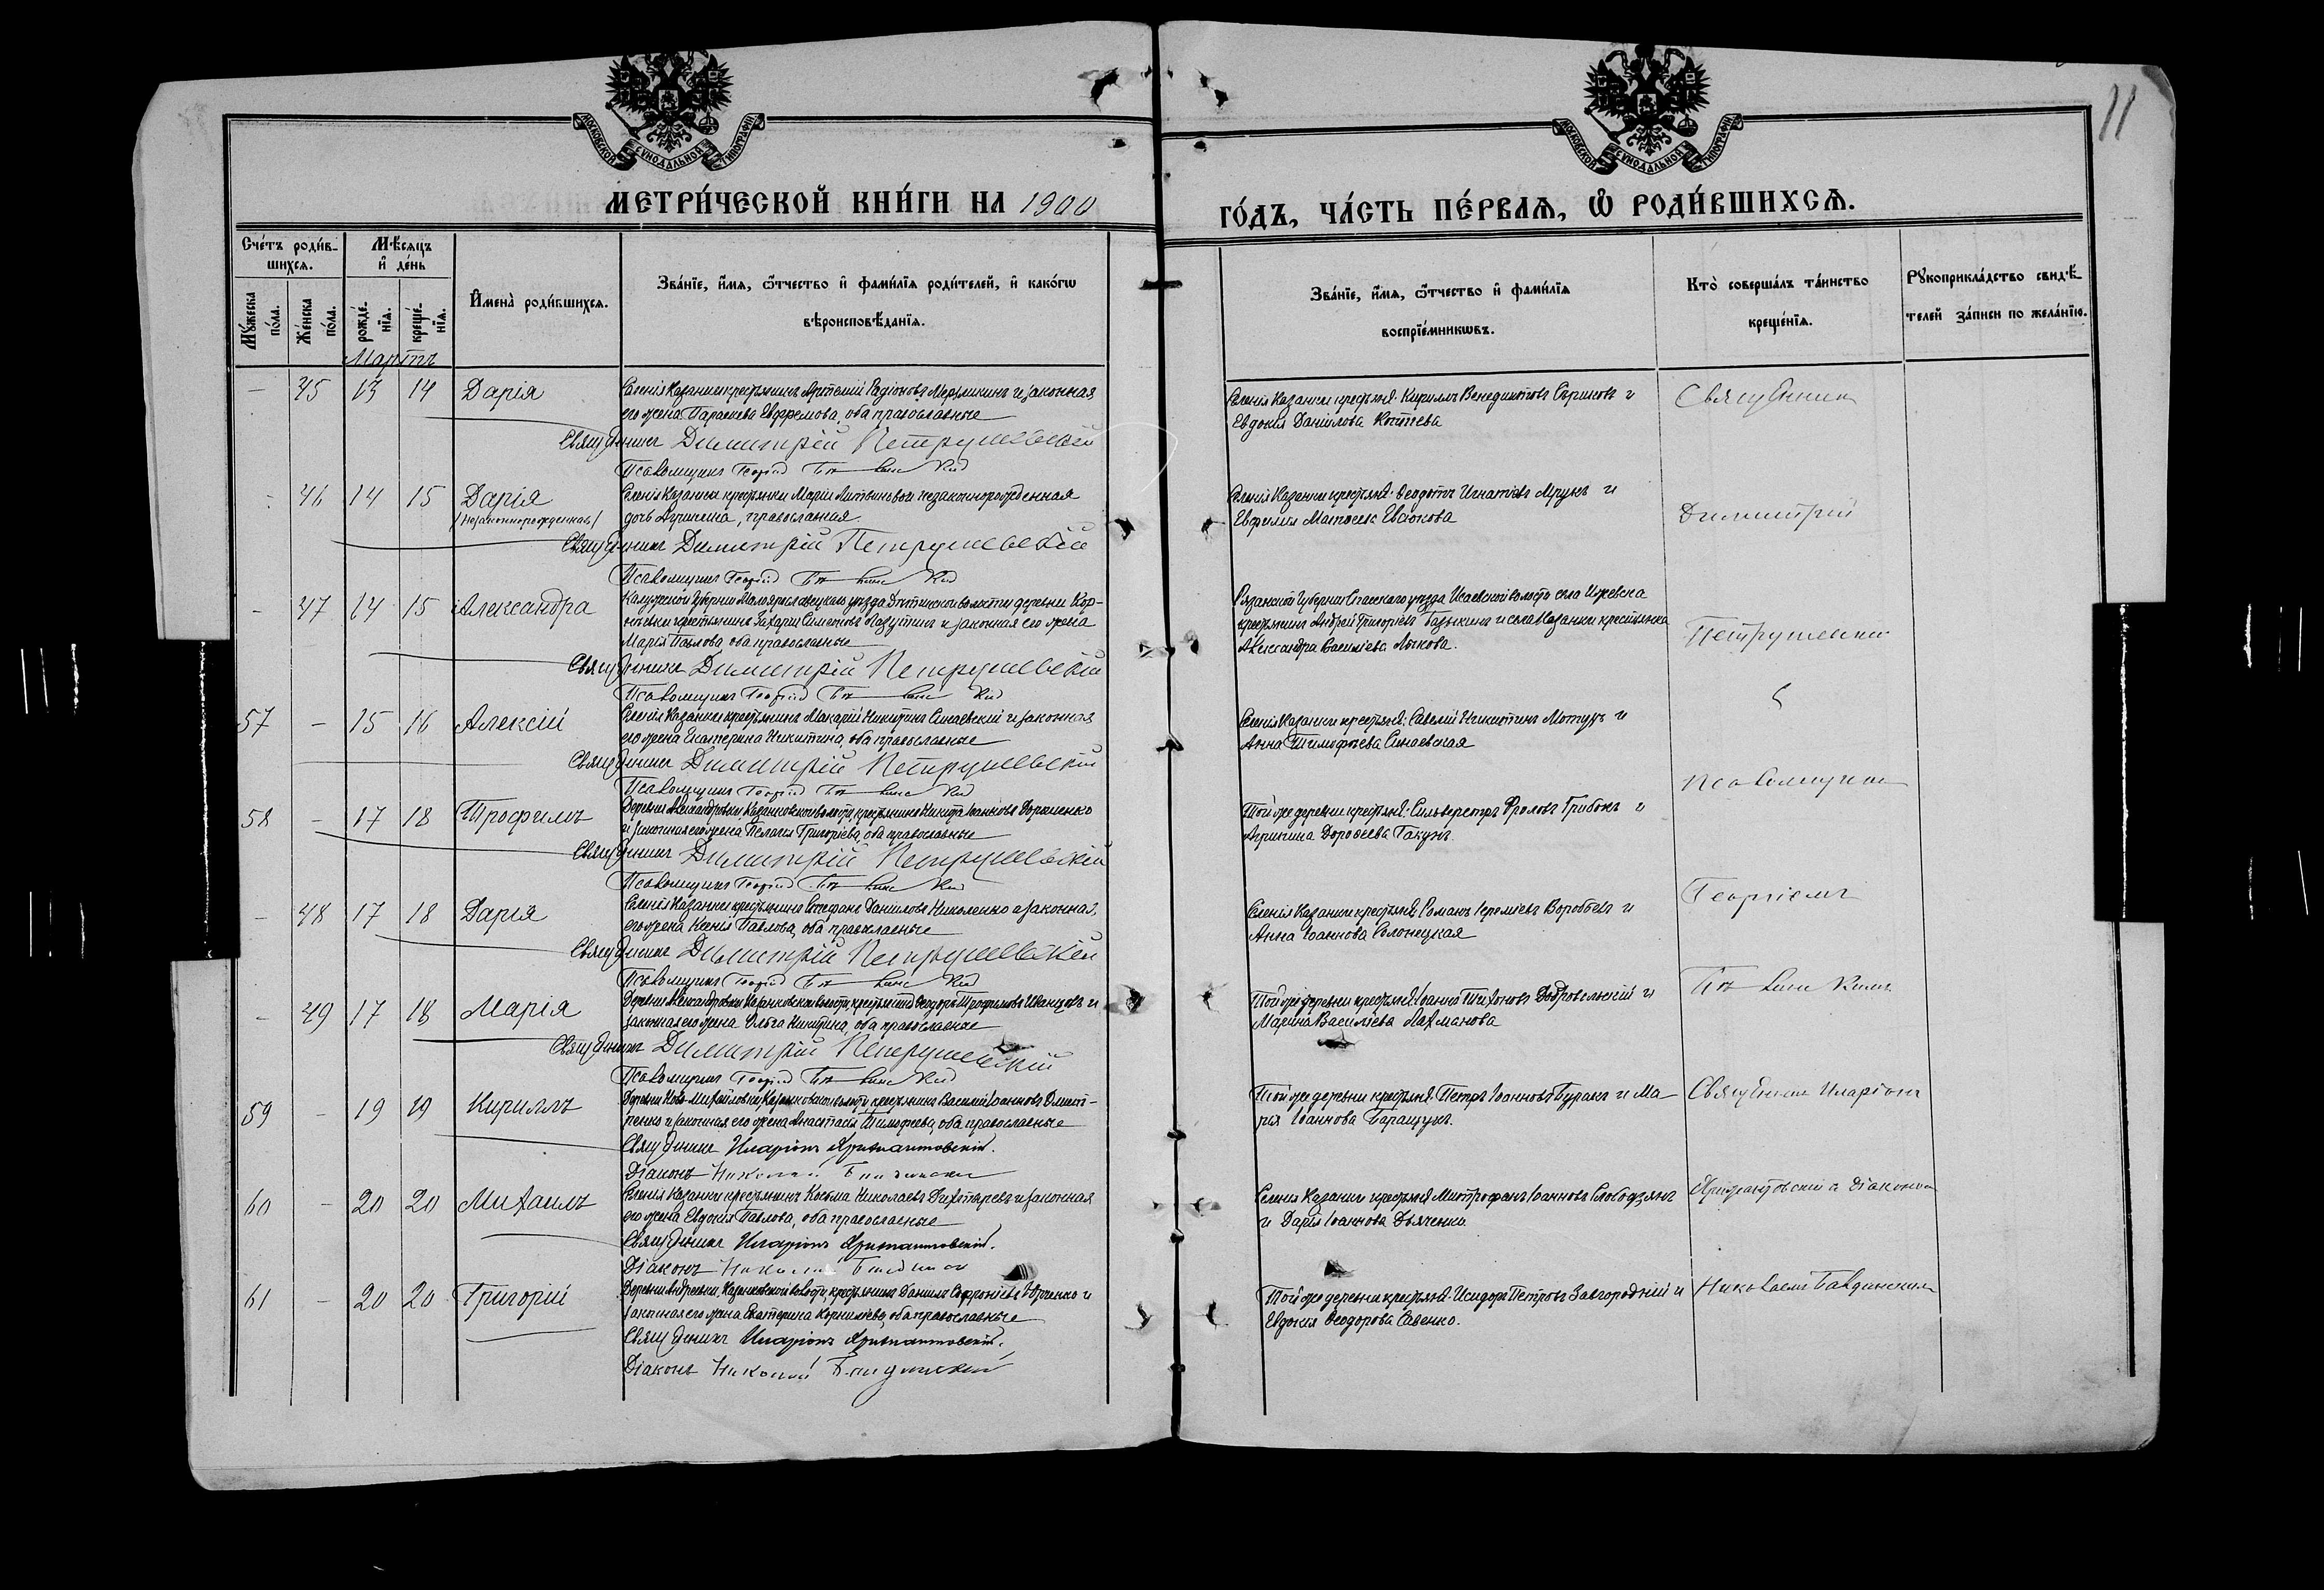 11
МОСКОВСКОЙ СѴНОДАЛЬНОЙ ТИПОГРАФІИ
МОСКОВСКОЙ СѴНОДАЛЬНОЙ ТИПОГРАФІИ
МЕТРИ́ЧЕСКОЙ КНИ́ГИ НА 1900
ГО́ДЪ, ЧА́СТЬ ПЕ́РВАѦ, Ѽ РОДИ́ВШИХСѦ.
Сче́тъ роди́в-
шихсѧ.
Мѣ́сѧцъ
и҆ де́нь
Мꙋ́жеска по́ла.
Же́нска по́ла.
рожде́-нїѧ.
креще́-нїѧ.
И҆мена̀ роди́вшихсѧ.
Зва́нїе, и҆́мѧ, ѻ҆́тчество и҆ фами́лїѧ роди́телей, и҆ како́гѡ
вѣроисповѣ́данїѧ.
Зва́нїе, и҆́мѧ, ѻ҆́тчество и҆ фами́лїѧ
воспрїе́мникѡвъ.
Кто̀ соверша́лъ та́инство
креще́нїѧ.
Рꙋкоприкла́дство свидѣ́-
телей за́писи по жела́нїю.
Мартъ
– 45 13 14 Дарія
Селенія Казанки крестьянинъ Артемій Радіоновъ и законная
его жена Параскева Евфремова, оба православные
Священникъ Димитрій Петрушевскій
Псаломщикъ Георгій
Селенія Казанки крестьяне: Кириллъ Венедиктовъ и
Евдокія Даніилова Коптева
Священник
46 14 15 Дарія
/незаконнорожденная/
Селенія Казанки крестьянки Маріи Литвиновой незаконнорожденная
дочь православная
Священникъ Димитрій Петрушевскій
Псаломщикъ Георгій
Селенія Казанки крестьяне: Ѳеодотъ Игнатіевъ и
Евфимія Евсюкова
Димитрій
– 47 14 15 Александра
Калужской Губерніи Малоярославецкаго уѣзда волости деревни Кор-
крестьянинъ Захарія и законная его жена
Марія Павлова, оба православные
Священникъ Димитрій Петрушевскій
Псаломщикъ Георгій
Рязанской Губерніи Спасскаго уѣзда Исаевской волости села Ижевска
крестьянинъ Андрей Григоріевъ и села Казанки крестьянка
Александра Василіева Лыкова.
Петрушевскій
57 – 15 16 Алексій
Селенія Казанки крестьянинъ Макарій Никитинъ Синаевскій и законная
его жена Екатерина Никитина, оба православные
Священникъ Димитрій Петрушевскій
Псаломщикъ Георгій
Селенія Казанки крестьяне: Савелій Никитинъ и
Анна Тимофеева Синаевская
с
Псаломщик
58 – 17 18 Трофимъ
Деревни Александровки Казанковской волости, крестьянинъ Никита Іоанновъ Дорошенко
и законная его жена Пелагія Григоріева, оба православные
Священникъ Димитрій Петрушевскій
Псаломщикъ Георгій
Той же деревни крестьяне: Сильверстръ Фроловъ Грибокъ и
Агрипина Доровеева Гакунъ.
– 48 17 18 Дарія
Селенія Казанки крестьянинъ Стефанъ Даніиловъ Николенко и законная
его жена Ксенія Павлова, оба православные
Священникъ Димитрій Петрушевскій
Псаломщикъ Георгій
Селенія Казанки крестьяне: Романъ Іереміевъ Воробьевъ и
Анна Іоаннова Солонецкая
Георгіемъ
– 49 17 18 Марія
Деревни Александровки Казанковской волости, крестьянинъ Ѳеодоръ Трофимовъ и
законная его жена Ольга Никитина, оба православные
Священникъ Димитрій Петрушевскій
Псаломщикъ Георгій
Той же деревни крестьяне: Іоаннъ Тихоновъ Добровольскій и
Марина Василіева Лахманова
59 – 19 19 Кириллъ
Деревни Ново-Михайловки, Казанковской волости, крестьянинъ Василій Іоанновъ Дмит-
ренко и законная его жена Анастасія Тимофеева, оба православные
Священникъ Иларіонъ
Діаконъ Николай
Той же деревни крестьяне: Петръ Іоанновъ Буракъ и Ма-
рія Іоаннова Баращукъ.
Священник Иларіонъ
60 – 20 20 Михаилъ
Селенія Казанки крестьянинъ Косьма Николаевъ Дихтяревъ и законная
его жена Евдокія Павлова, оба православные
Священникъ Иларіонъ
Діаконъ Николай
Селенія Казанки крестьяне: Митрофанъ Іоанновъ Слободзянъ
и Дарія Іоаннова Дьяченко
и діакономъ
61 – 20 20 Григорій
Деревни Андреевки, Казанковской волости, крестьянинъ Даніилъ Софроніевъ Юрченко и
законная его жена Екатерина Корниліева, оба православные
Священникъ Иларіонъ
Діаконъ Николай
Той же деревни крестьяне: Исидоръ Петровъ Завгородній и
Евдокія Ѳеодорова Савенко.
Николаемъ